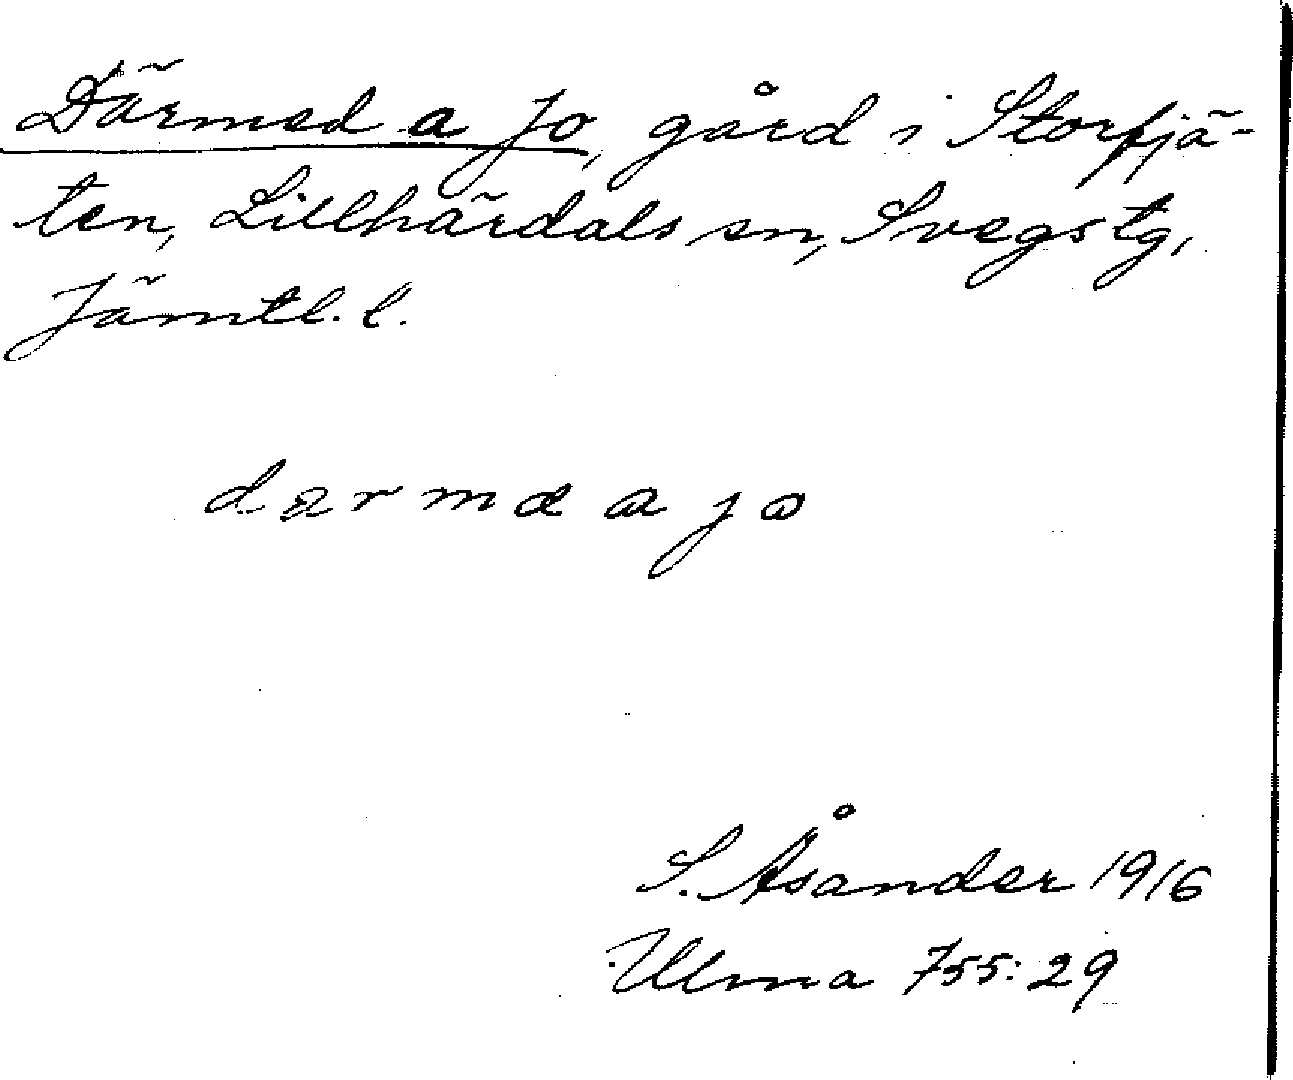 Därmed a Jo, gård i Storfjä-
ten, Lillhärdals sn, Svegs tg,
Jämtl. l.
S. Åsander 1916
Ulma 755:29